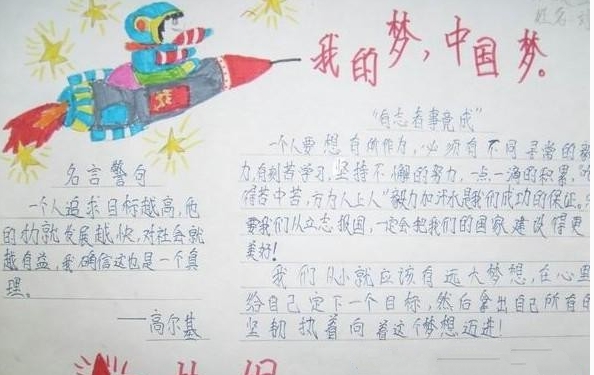 姓名
我的梦，中国梦。
"有志者事竟成"
一个人要想有所作为，必须有不同寻常的毅
力，有刻苦学习，坚持不懈的努力，一点一滴的积累，
得苦中苦，方为人上人"毅力加汗水是我们成功的保证。
要我们从立志报国，一定会把我们的国家建设得更
美好！
我们从小就应该有远大梦想，在心里
给自己定下一个目标，然后拿出自己所有的
坚韧执着向着这个梦想迈进！
名言警句
一个人追求目标越高，他
的才就发展越快，对社会就
越有益，我确信这也是一个真
理。
——高尔基